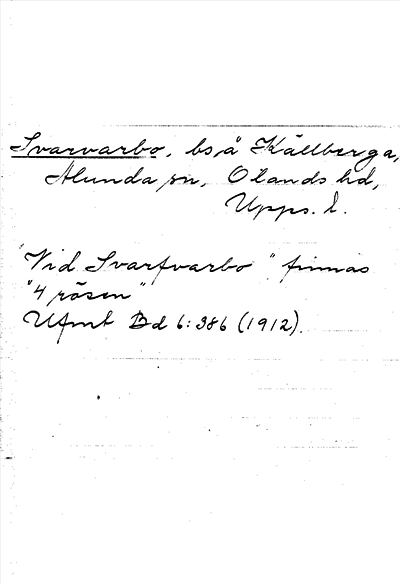 Svarvarbo, bs å Källberga,
Alunda sn, Olands hd,
Upps. l.
"Vid Svarfvarbo" finnas
"4 rösen"
Ufmt Bd 6:386 (1912).